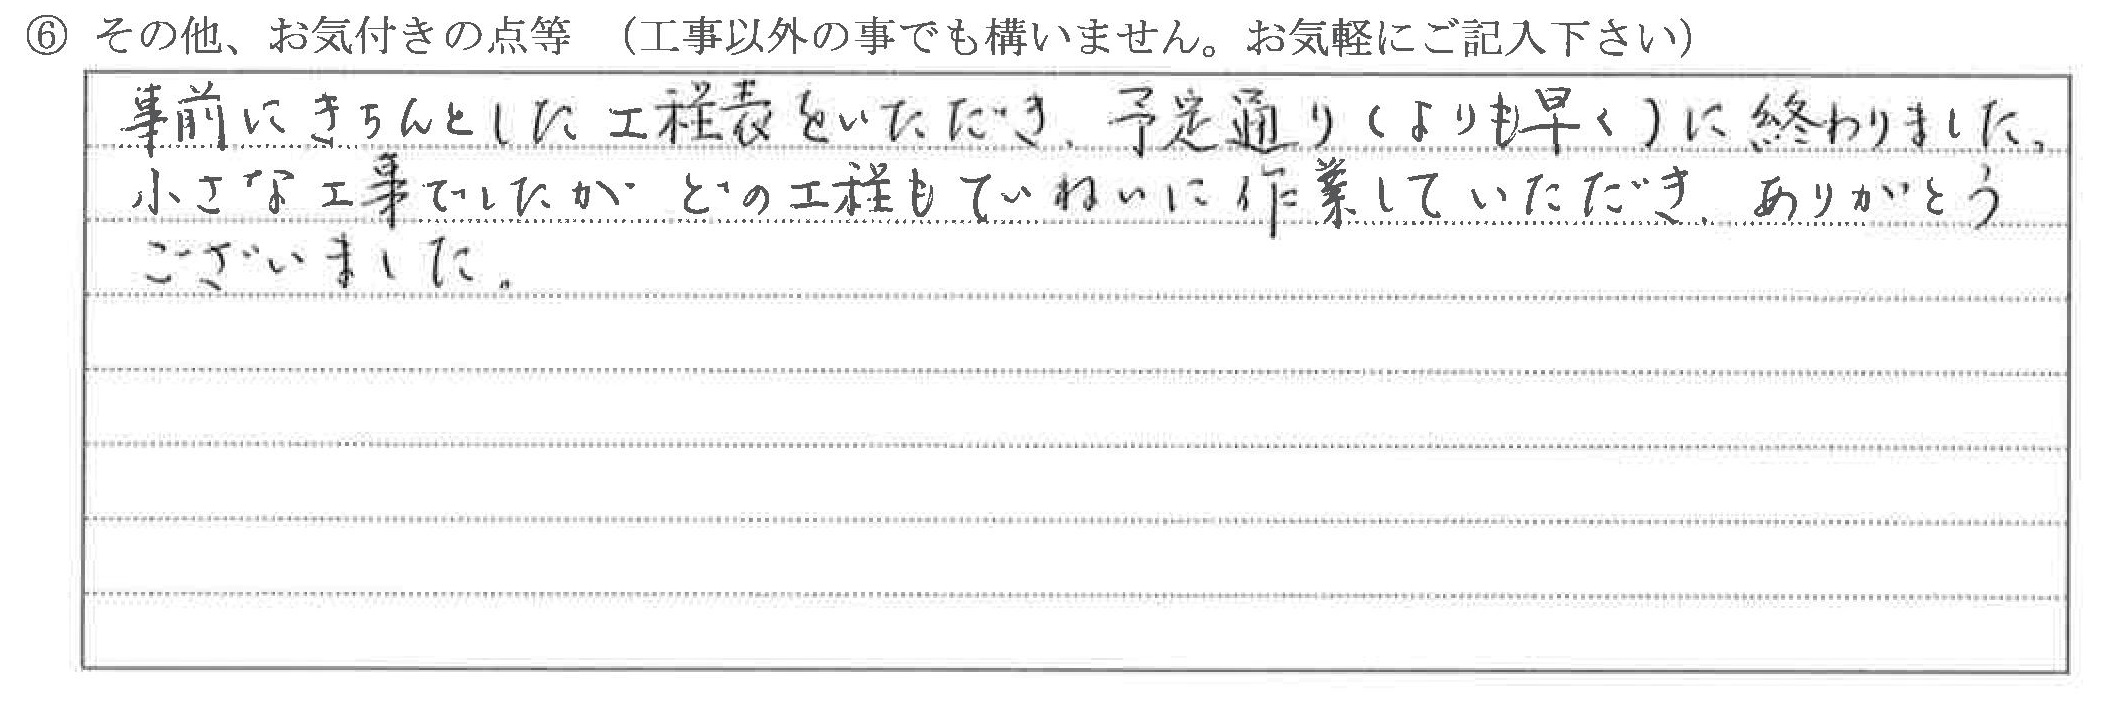 ⑥ その他、お気付きの点等 （工事以外の事でも構いません。お気軽にご記入下さい）
事前にきちんとした工程表をいただき、予定通り(よりも早く)に終わりました。
小さな工事でしたが どの工程もていねいに作業していただき、ありがとう
ございました。